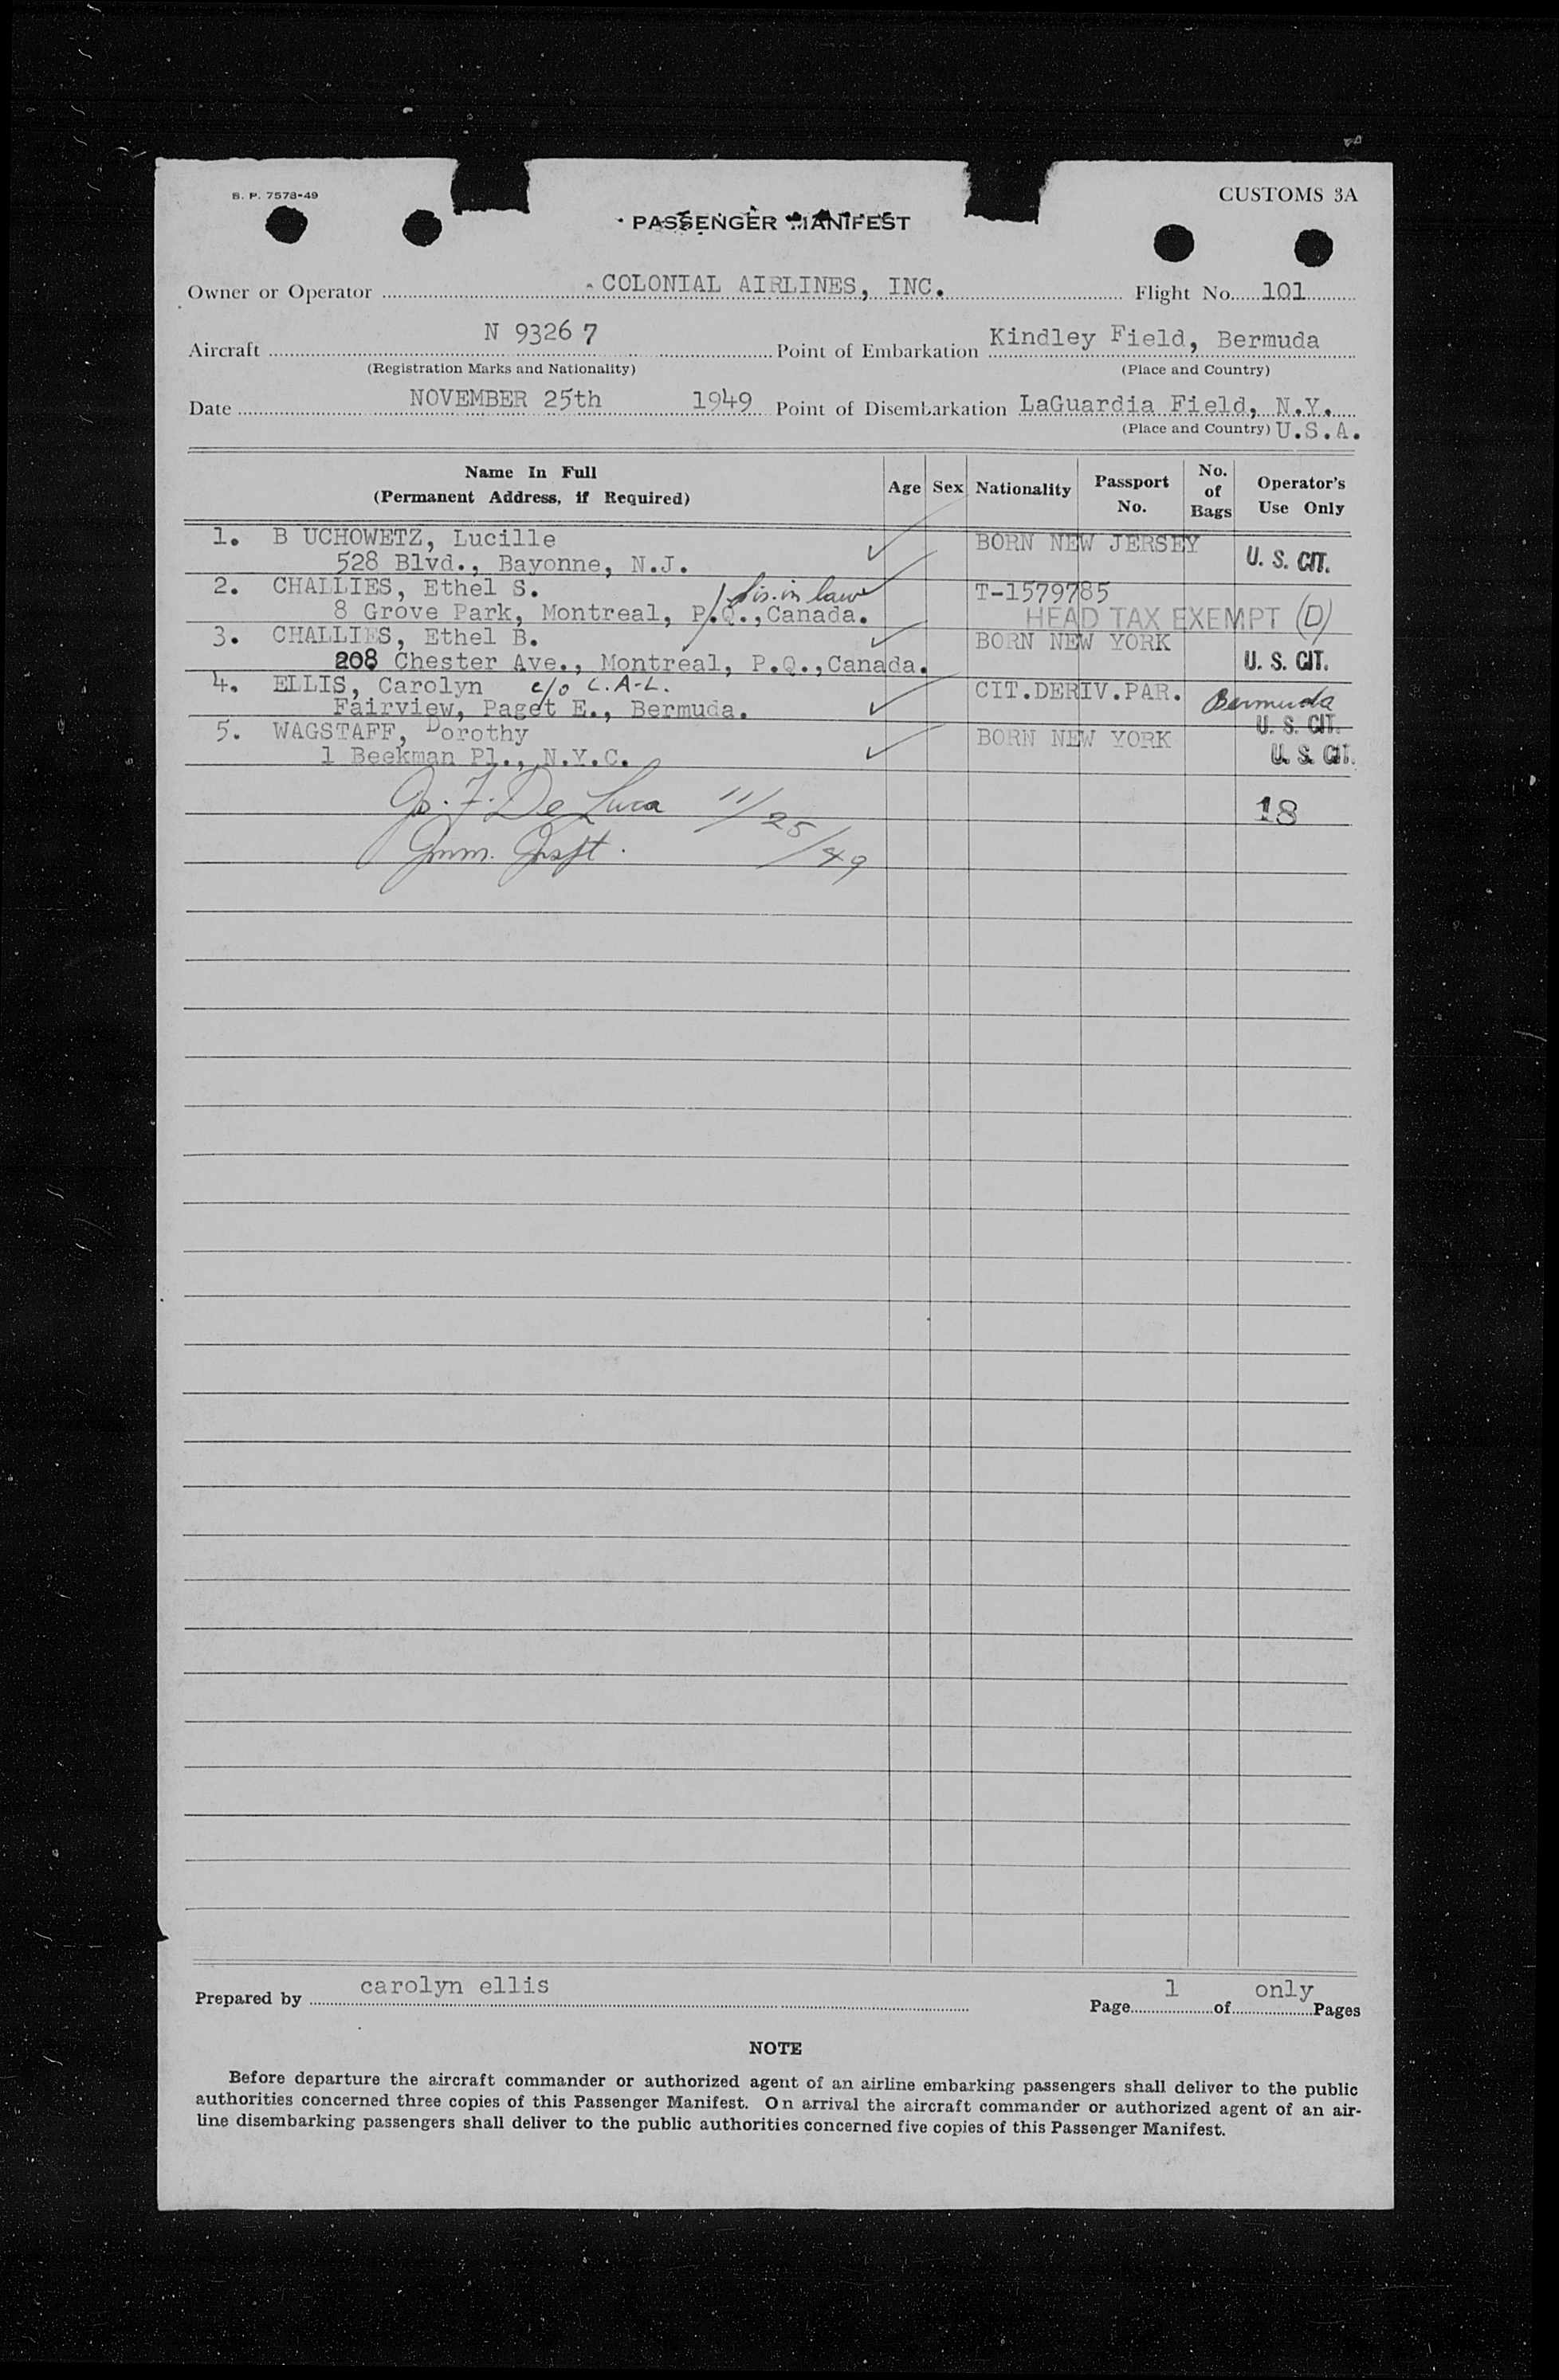 B. P. 7578-49
CUSTOMS 3A
PASSENGER MANIFEST
Owner or Operator COLONIAL AIRLINES, INC. Flight No. 101
Aircraft N 93267 Point of Embarkation Kindley Field, Bermuda
(Registration Marks and Nationality) (Place and Country)
Date NOVEMBER 25th 1949 Point of Disembarkation LaGuardia Field, N.Y.
(Place and Country) U.S.A.
Name In Full
(Permanent Address, if Required) Age Sex Nationality Passport No. No. of Bags Operator's Use Only
1. B UCHOWETZ, Lucille BORN NEW JERSEY
528 Blvd., Bayonne, N.J. U. S. CIT.
2. CHALLIES, Ethel S. sis. in law T-1579785
8 Grove Park, Montreal, P.Q.,Canada. HEAD TAX EXEMPT (D)
3. CHALLIES, Ethel B. BORN NEW YORK
208 Chester Ave., Montreal, P.Q.,Canada. U. S. CIT.
4. ELLIS, Carolyn c/o C.A-L. CIT.DERIV.PAR. Bermuda
Fairview, Paget E., Bermuda. U. S. CIT.
5. WAGSTAFF, Dorothy BORN NEW YORK
1 Beekman Pl., N.Y.C. U. S. CIT.
F. De Luca 11/25/49 18
Imm. Inspt.
Prepared by carolyn ellis Page 1 of only Pages
NOTE
Before departure the aircraft commander or authorized agent of an airline embarking passengers shall deliver to the public
authorities concerned three copies of this Passenger Manifest. On arrival the aircraft commander or authorized agent of an air-
line disembarking passengers shall deliver to the public authorities concerned five copies of this Passenger Manifest.